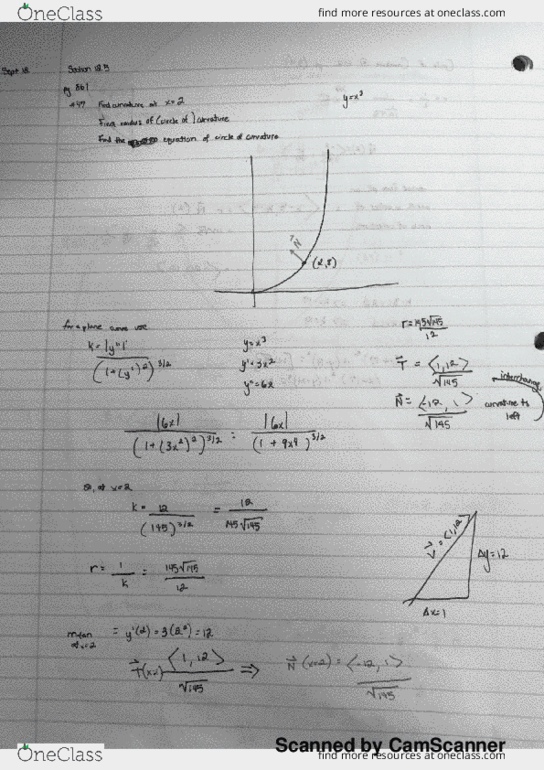 OneClass
find more resources at oneclass.com
Sept 18
Section 12.5
pg 861
#47 Find curvature at x=2
y=x³
Find radius of (circle of) curvature
Find the equation of circle of curvature
N⃗
(2,8)
for a plane curve use
k= |y''|
(1+(y')²)^3/2
y=x³
y'=3x²
y''=6x
r=145√145
12
T⃗ = <1,12>
√145
N⃗= <-12, 1>
√145
interchange
curvature to
left
|6x|
(1+(3x²)²)^3/2
=
|6x|
(1 + 9x⁴)^3/2
so, at x=2
k= 12
(145)^3/2
= 12
145√145
r= 1
k
= 145√145
12
V⃗=<1,12>
Δy=12
Δx=1
at x=2
= y'(2)=3(2²)=12
T⃗(x=2) <1,12>
√145
⇒
N⃗ (x=2) = <-12, 1>
√145
Scanned by CamScanner
OneClass
find more resources at oneclass.com